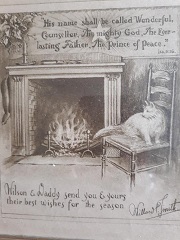 His name shall be called Wonderful,
Counsellor, The mighty God, The Ever-
lasting Father, The Prince of Peace."
Wilson & Daddy send you & yours
their best wishes for the season